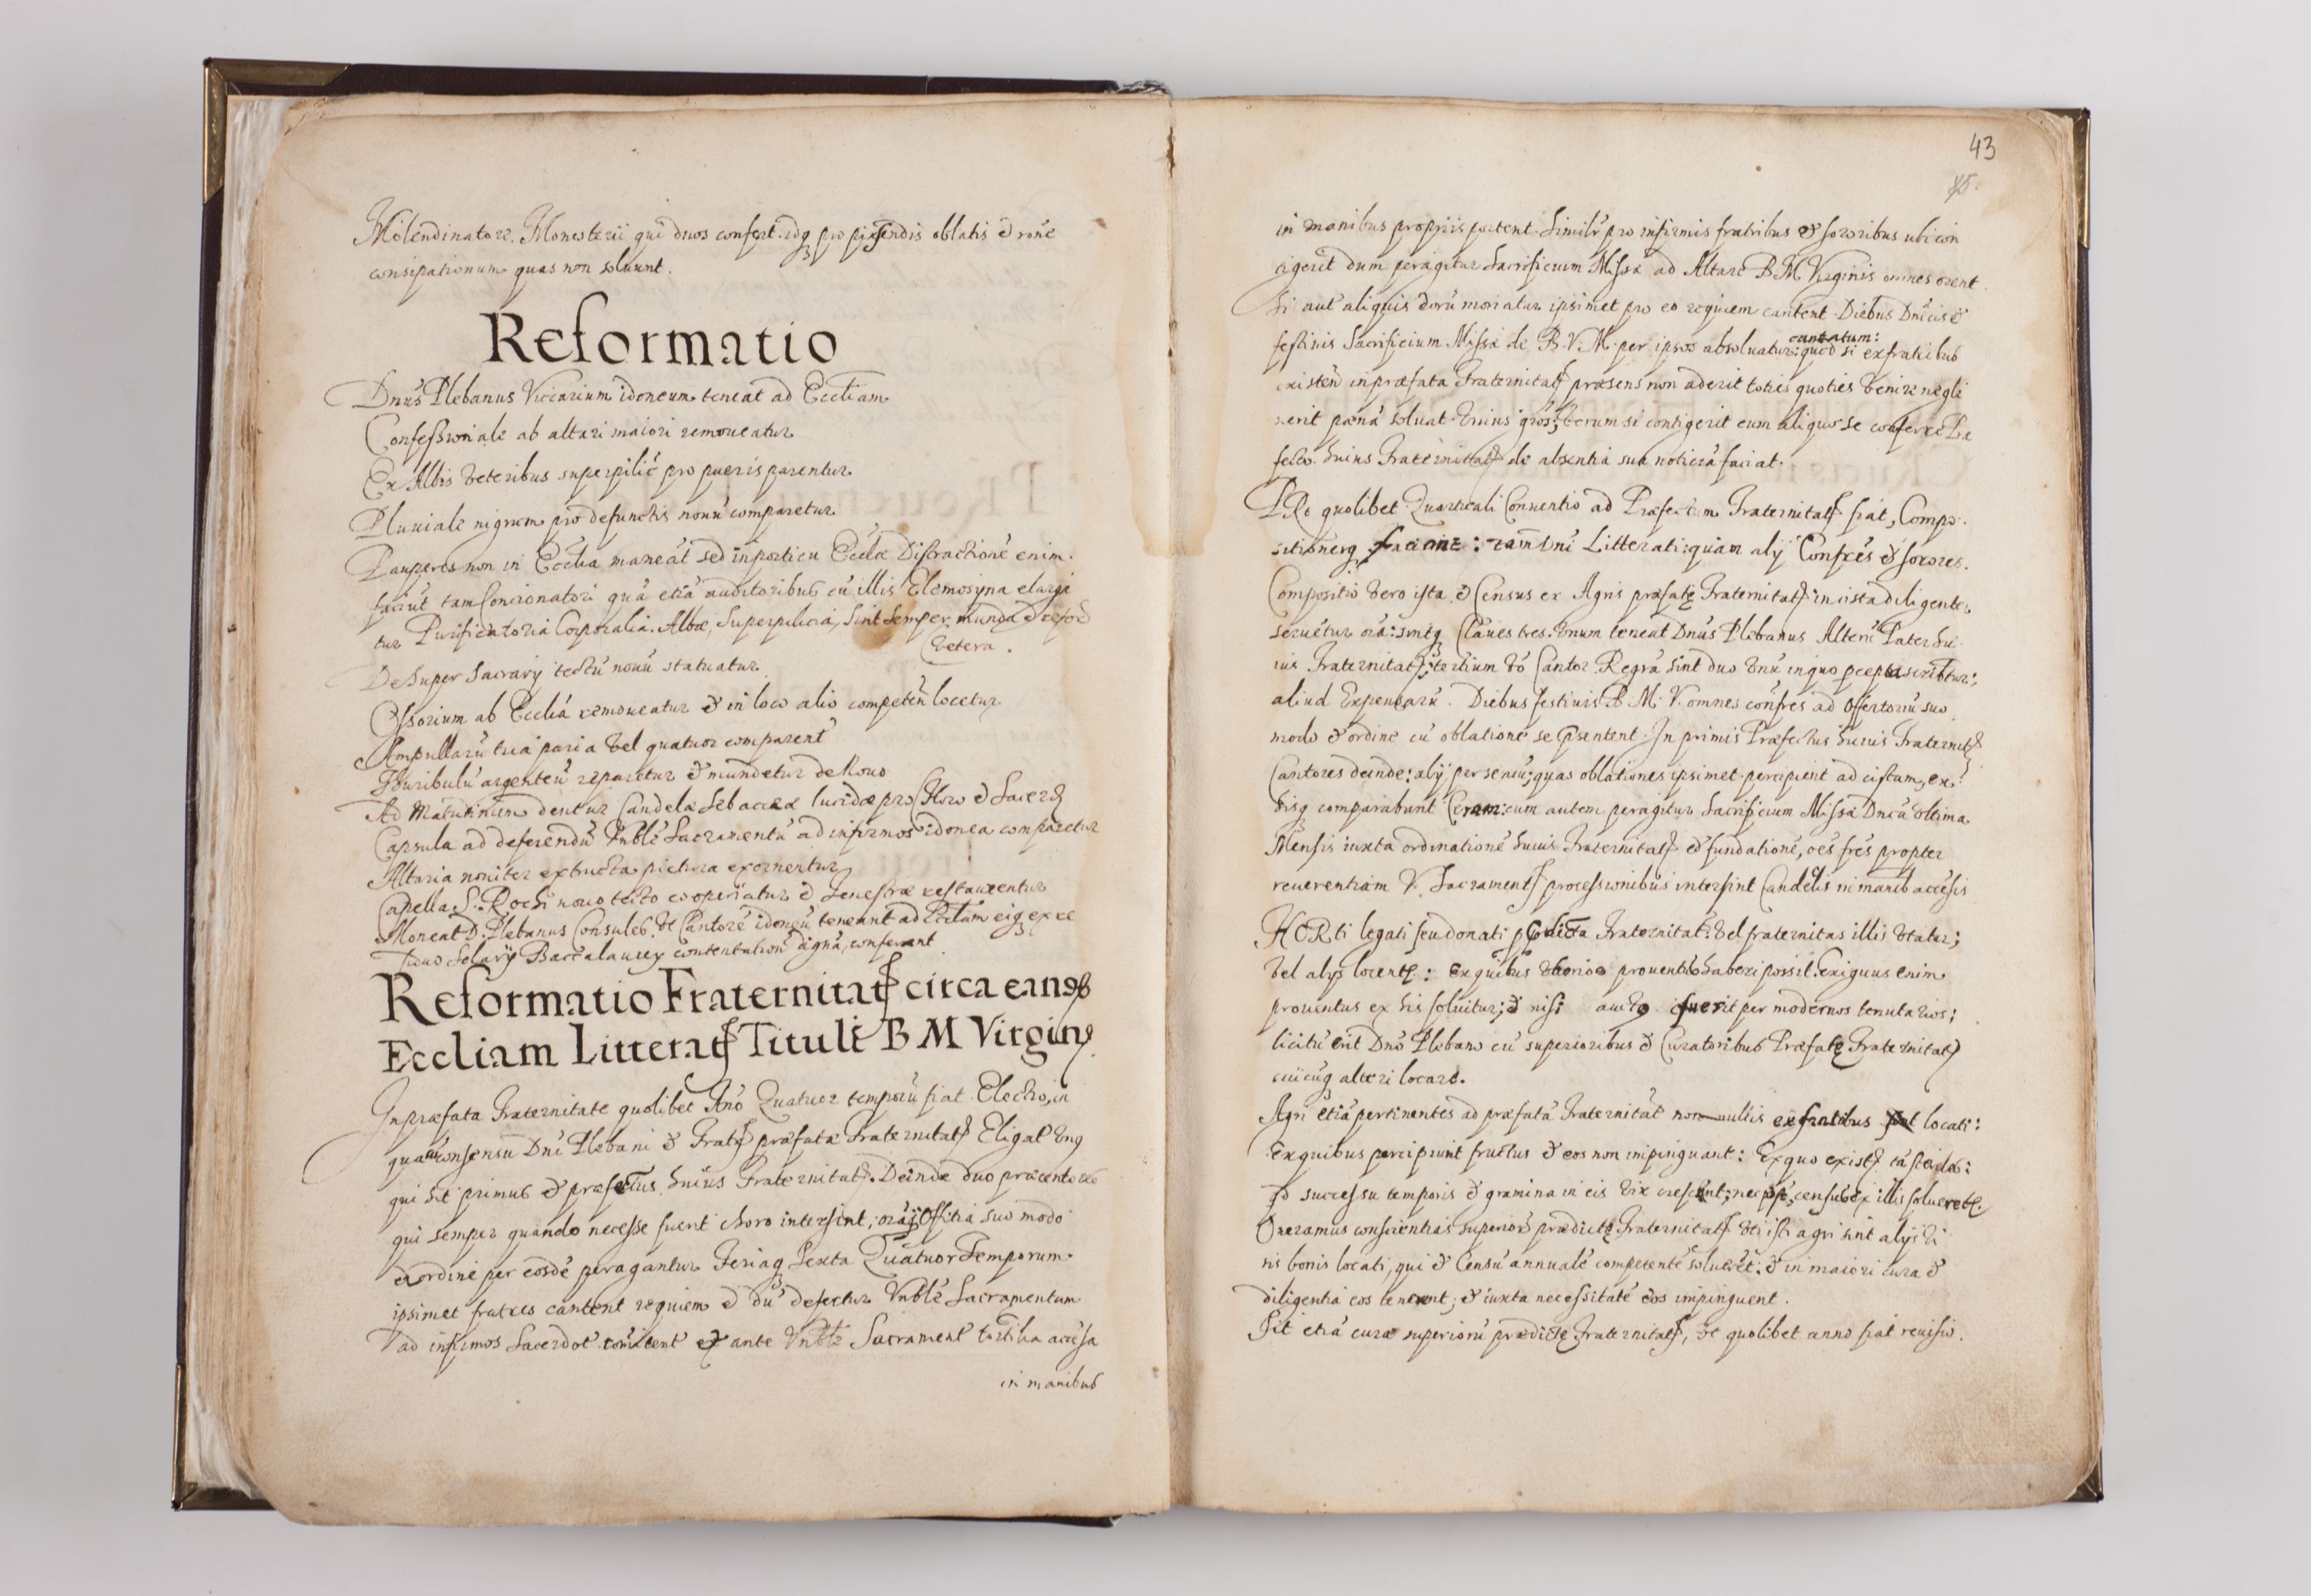 Molendinatore Monesterii qui duos confert. idq pro pinsendis oblatis & rone
consipationum quas non soluunt.
Reformatio
Dnus Plebanus Viccarium idoneum teneat ad Eccliam
Confessionale ab altari maiori remoueatur
Ex Albis veteribus superpilic pro pueris parentur
Pluuiale nigrum pro defunctis nouū comparetur
Pauperes non in Ecclia maneāt sed in porticu Ecclæ Distractionē enim
faciūt tam Concionatori quā etiā auditoribus cū illis Elemosyna elargi
tur Purificatoria Corporalia. Albæ, Superpilicia, sint semper munda &
vetera.
Desuper Sacrarÿ tectū nouū statuatur
Ossorium ab Eccliā remoueatur & in loco alio competēn locetur
Ampullarū tria paria vel quatuor comparent
Thuribulū argenteū reparetur & mundetur de Nouo
Ad Matutinum dentur Candelæ sebaceæ lucidæ pro Choro & Sacer
Capsula ad deferendū Vnble Sacramentū ad infirmos idonea comparetur
Altaria nouiter extructa pictura exornentur
Capella S. Rochi nouo tecto cooperiatur & Fenestræ restaurentur
Moneat D. Plebanus Consules. vt Cantorē idoneū teneant ad Eccliam eiq ex re
siduo Solarÿ Baccalaurey contentation dignā, conferant
Reformatio Fraternitat circa eand
Eccliam Litterat Tituli B M Virgin
In præfata Fraternitate quolibet Ano Quatuor temporū fiat Electio, in
qua cū consensu Dni Plebani & Frat præfatæ Fraternitat Eligat vnq
qui sit primus & præfectus huius Fraternitat. Deinde duo præcentores
qui semper quando necesse fuerit choro intersint, Offitia suo modo
& ordine per eosdē peragantur Feriaq Sexta Quatuor Temporum
ipsimet fratres cantent requiem & dū defertur Vnble Sacramentum
ad infirmos Sacerdot comitent & ante Vnble Sacrament tortilia accēsa
in manibus
43
45
in manibus propriis portent. Similr pro infirmis fratribus & sororibus ubi con
tigerit dum peragitur Sacrificium Missæ ad Altare B. M. Virginis omnes orent
Si aut aliquis eorū moriatur ipsimet pro eo requiem cantent Diebus Dnicis &
cantatum:
festiuis Sacrificium Missæ de B. V. M. per ipsos absoluatur: quod si ex fratribus
existen in præfata Fraternitat præsens non aderit toties quoties venire negle
xerit pœnā soluat. vnius gros; verum si contigerit eum aliquo se conferre Præ
fecto huius Fraternitat de absentia sua noticiā faciat.
PRo quolibet Quartuali Conuentio ad Præfectum Fraternitat fiat, Compo
sitionemq faciant: tam Dni Litterati: quam alÿ Confres & sorores.
Compositio vero ista & Census ex Agris præfatę Fraternitat in cista diligenter
seruetur Claues tres. vnum teneat Dnus Plebanus Alterū Pater hu
ius Fraternitat; tertium vō Cantor. Regrā sint duo vnū in quo ꝑcepta scribtur:
aliud Expensarū. Diebus festiuis B M. V. omnes confres ad Offertoriū suo
modo & ordine cū oblatione se psentent. In primis Præfectus huius Fraternit
Cantores deinde: alÿ per seniū; quas oblationes ipsimet percipient ad cistam, ex
hisq comparabunt Ceram: cum autem peragitur Sacrificium Missæ Dnica vltima
Mensis iuxta ordinationē huius Fraternitat & fundationē, oēs fres propter
reuerentiam V. Sacrament processionibus intersint Candelis in manib accēsis
HORti legati seu donati Fraternitat: vel fraternitas illis vtatur;
vel alÿs locent: ex quibus vberior prouentus haberi possit. Exiguus enim
prouentus ex his soluitur; & nisi auctq fuerit per modernos tenutarios;
licitū erit Dno Plebano cū superioribus & Curatoribus Præfatę Fraternitat
cuicūq alteri locare.
Agri etiā pertinentes ad præfatā Fraternitāt locati:
Ex quibus percipiunt fructus & eos non impinguant: Ex quo
successu temporis & gramina in eis vix crescent; censuo ex illis
Oneramus conscientias superiorū prædictę Fraternitat vt isti agri sint alÿs vi
ris bonis locati, qui & Censū annualē competentē soluerēt: & in maiori cura &
diligentia eos tenerent; & iuxta necessitatē eos impinguent.
Sit etiā curæ superiorū prædictę Fraternitat, vt quolibet anno fiat reuisio.